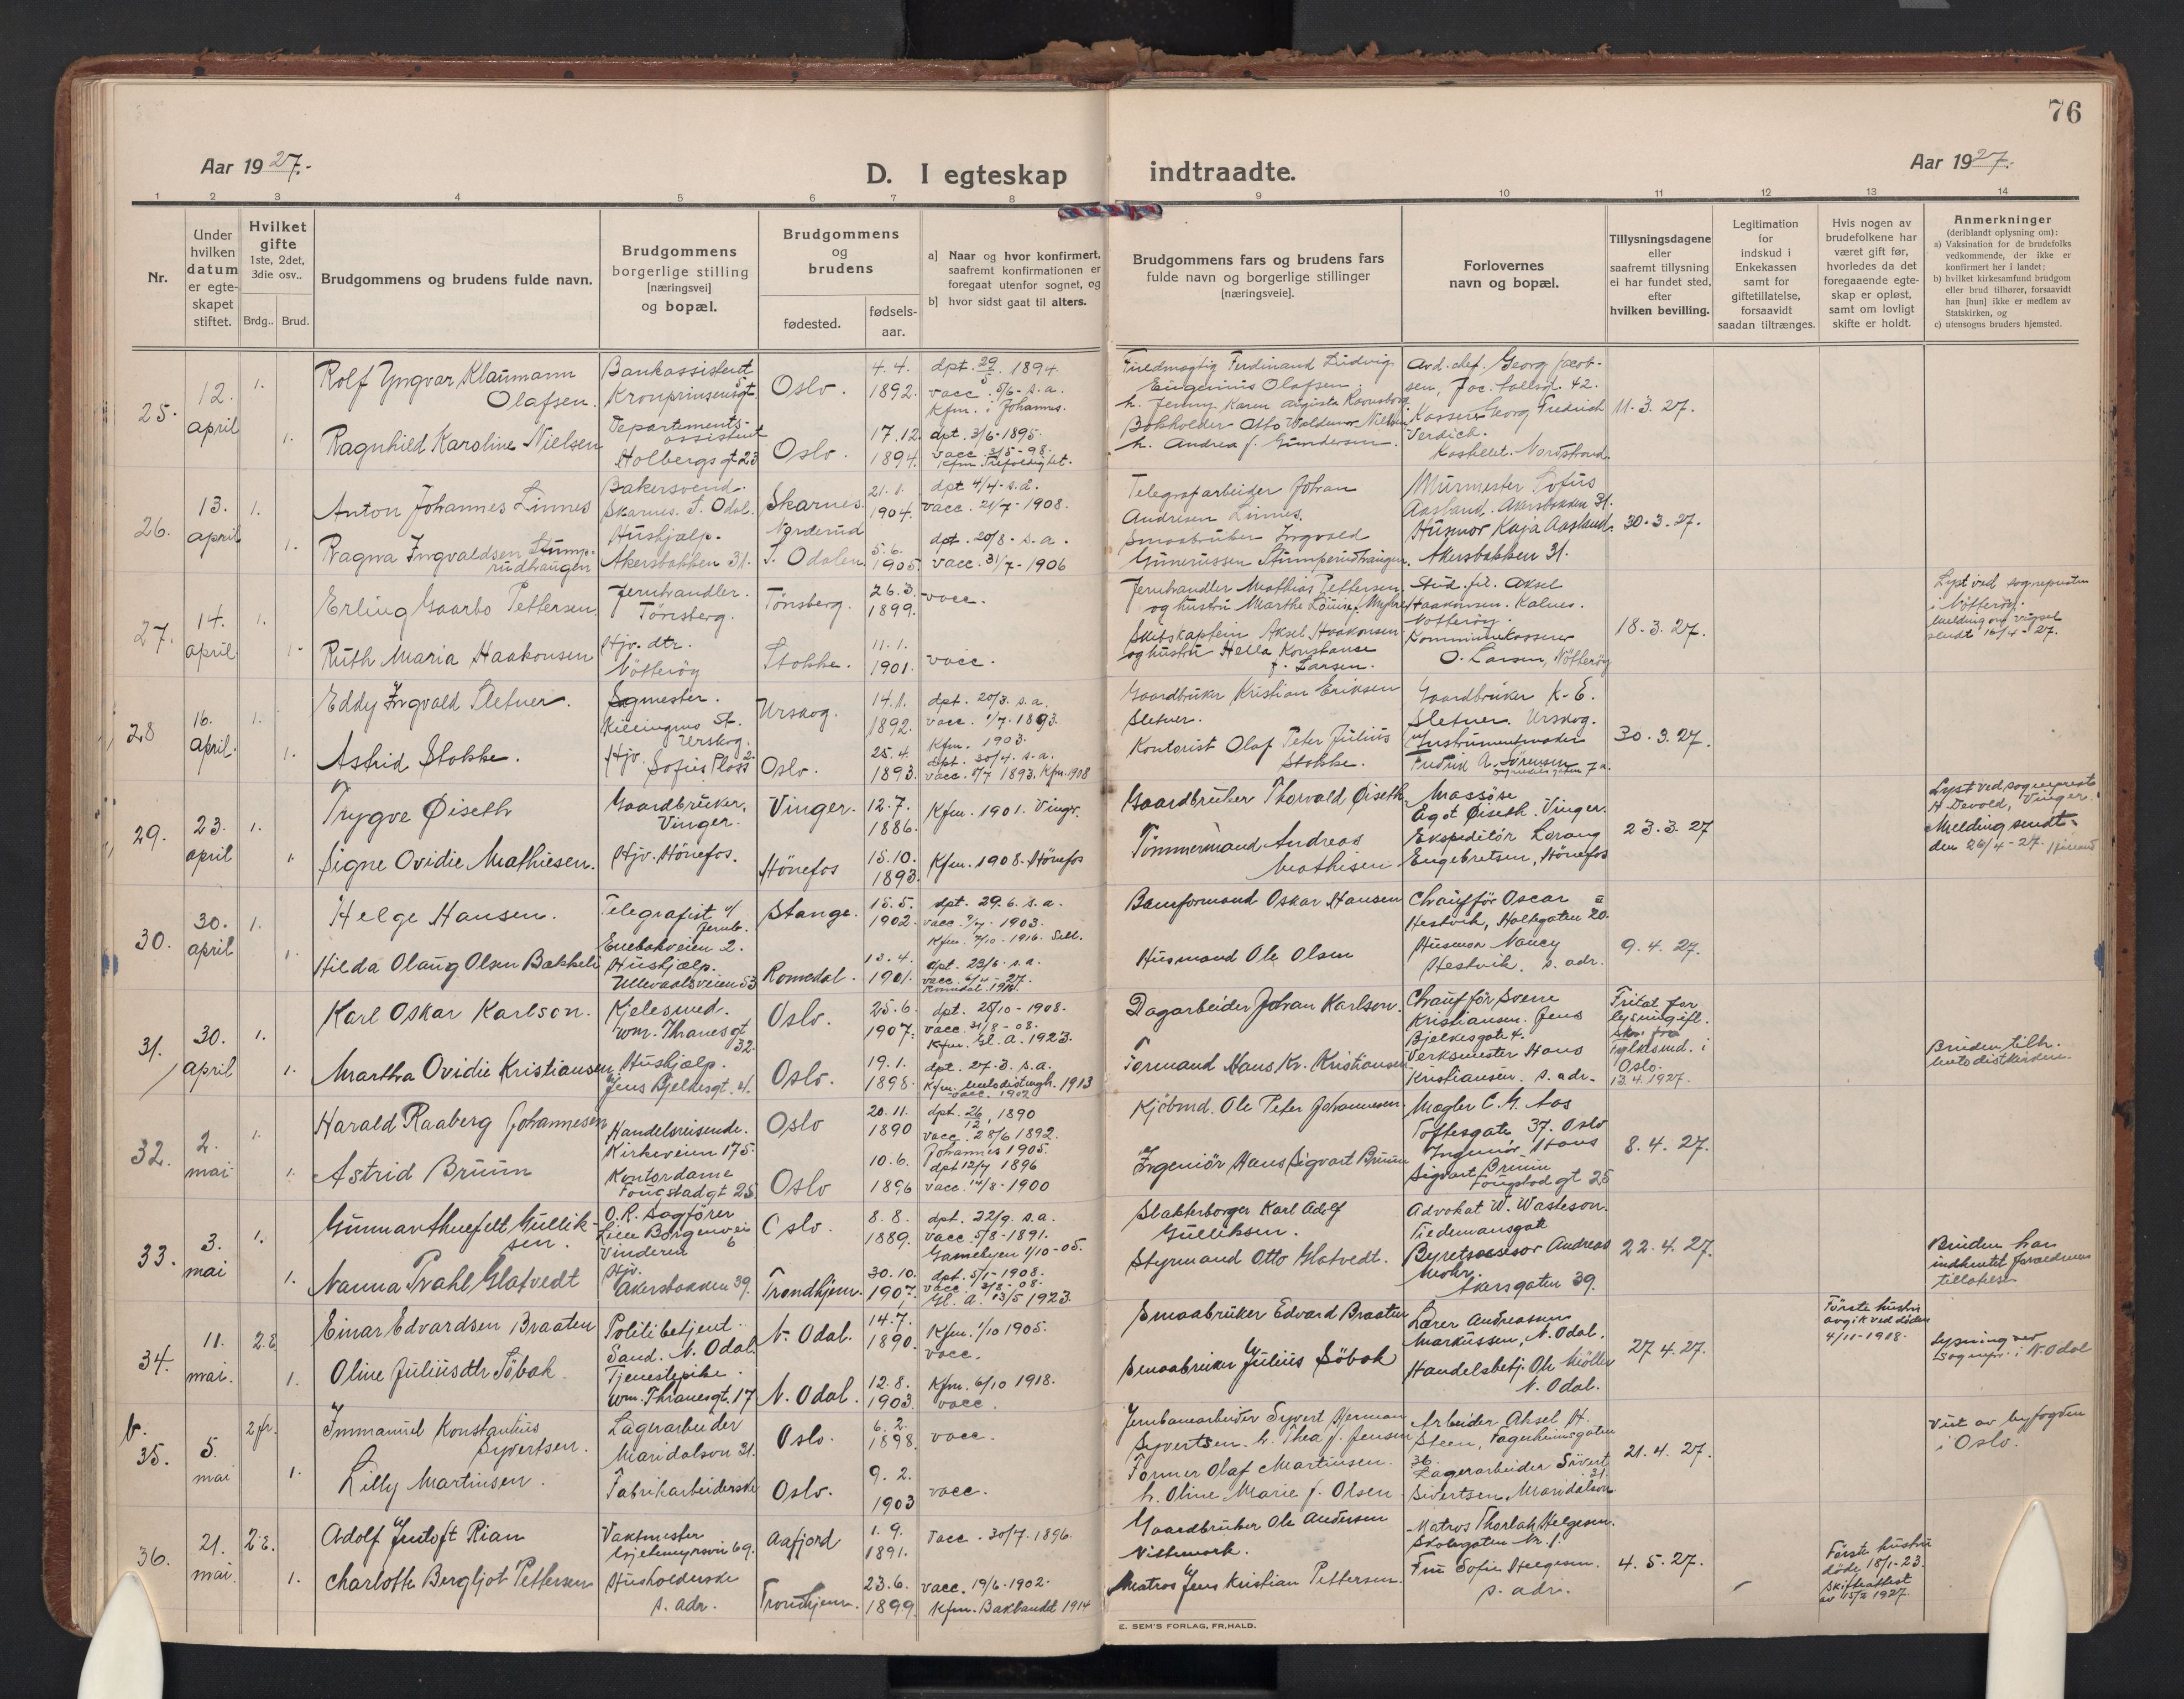 76
Aar 1927.
D. I egteskap indtraadte.
Aar 1927.
1 2 3 4 5 6 7 8 9 10 11 12 13 14
Nr.
Under hvilken datum er egteskapet stiftet.
Hvilket gifte 1ste, 2det, 3die osv..
Brdg.. Brud.
Brudgommens og brudens fulde navn.
Brudgommens borgerlige stilling [næringsvei] og bopæl.
Brudgommens og brudens
fødested.
fødsels-aar.
a] Naar og hvor konfirmert, saafremt konfirmationen er foregaat utenfor sognet, og
b] hvor sidst gaat til alters.
Brudgommens fars og brudens fars fulde navn og borgerlige stillinger [næringsveie].
Forlovernes navn og bopæl.
Tillysningsdagene eller saafremt tillysning ei har fundet sted, efter hvilken bevilling.
Legitimation for indskud i Enkekassen samt for giftetillatelse, forsaavidt saadan tiltrænges.
Hvis nogen av brudefolkene har været gift før, hvorledes da det foregaaende egteskap er opløst, samt om lovligt skifte er holdt.
Anmerkninger (deriblandt oplysning om):
a) Vaksination for de brudefolks vedkommende, der ikke er konfirmert her i landet;
b) hvilket kirkesamfund brudgom eller brud tilhører, forsaavidt han [hun] ikke er medlem av Statskirken, og
c) utensogns bruders hjemsted.
25. 12. april 1. 1.
Rolf Yngvar Klaumann Olafsen.
Bankassistent Kronprinsensgt. 5
Oslo. 4.4. 1892.
dpt. 29/5 1894
vacc. 5/6 - s.a.
Kfm. i Johannes.
Ferdinand Ludvig Eugenius Olafsen.
h. Jenny Karen Augusta
Avd. chef. Georg Jacobsen, Jac. Aallsgt. 42.
11.3.27.
Ragnhild Karoline Nielsen
Departementsassistent Holbergsgt 23
Oslo. 17.12. 1894.
dpt. 3/6 - 1895.
vacc. 3/5 - 98.
Kfm. Trefoldighet.
Bokholder Otto Waldemar Nielsen
h. Andrea f. Gundersen.
Kasserer Georg Fredrich
Kastellet. Nordstrand.
26. 13. april 1. 1.
Anton Johannes Linnes
Bakersvend. Skarnes. S. Odal.
Skarnes 21.1. 1904.
dpt 4/4 - s.a.
vacc. 21/7 - 1908.
Telegrafarbeider Johan Andresen Linnes.
Murmester Sofus Aasland. Akersbakken 31.
30.3.27.
Ragna Ingvaldsen Stumperudhaugen
Hushjælp. Akersbakken 31.
Norderud S. Odalen 5.6. 1905.
dpt. 20/8 - s.a.
vacc. 31/7 - 1906
Smaabruker Ingvald Gunerussen Stumperudhaugen.
Husmor Kaja Aasland. Akersbakken 31.
27. 14. april 1. 1.
Erling Gaarbo Pettersen
Jernhandler. Tønsberg.
Tönsberg. 26.3. 1899.
vacc.
Jernhandler Mathias Pettersen og hustru Marthe Lovise f. Myhre
Stud. fil. Aksel Haakonsen. Kalnes. Nötteröy.
18.3.27.
Lyst ved sognepresten i Nötteröy. Melding om vigsel sendt 16/4 - 27.
Ruth Maria Haakonsen
Hjv. dtr. Nötteröy
Stokke. 11.1. 1901.
vacc.
Skibskaptein Aksel Haakonsen og hustru Hella Konstanse f. Larsen.
Kommunekasserer O. Larsen, Nötteröy
28 16. april. 1. 1.
Eddy Ingvald Sletner.
Sagmester. Killingmo St. Urskog.
Urskog. 14.1. 1892.
dpt. 20/3. s.a.
vacc. 1/7. 1893.
Gaardbruker Kristian Eriksen Sletner.
Gaardbruker K. E. Sletner. Urskog.
30.3.27.
Astrid Stokke.
Hjv. Sofies Plass 2.
Oslo. 25.4. 1893.
Kfm. 1903.
dpt. 30/4. s.a.
vacc. 5/7 1893. Kfm. 1908
Kontorist Olaf Peter Julius Stokke.
Instrumentmaker Fredrik A. Sörensen 7a.
29. 23. april 1. 1.
Trygve Øiseth
Gaardbruker, Vinger.
Vinger. 12.7. 1886.
Kfm. 1901. Vinger.
Gaardbruker Thorvald Øiseth
Massöse Agot Øiseth. Vinger.
23.3.27
Lyst ved sogneprest H. Devold, Vinger. Melding sendt den 26/4 - 27.
Signe Ovidie Mathiesen.
Hjv. Hönefos.
Hönefos 15.10. 1893.
Kfm. 1908. Hönefos
Tömmermand Andreas Mathisen
Ekspeditör Lorang Engebretsen, Hönefos
30. 30. april 1. 1.
Helge Hansen.
Telegrafist v/ Jernb. Enebakveien 2.
Stange. 15.5. 1902.
dpt. 29.6. s.a.
vacc. 1903.
Baneformand Oskar Hansen
Chauffør Oscar Hestvik, Holtegaten 20.
9.4.27.
Hilda Olaug Olsen Bakkeli
Hushjælp. Ullevaalsveien 53
Romedal. 1901.
dpt. 23/6. s.a.
Husmand Ole Olsen
Husmor Nancy Hestvik. s. adr.
31. 30. april 1. 1.
Karl Oskar Karlson.
Kjelesmed. Wm. Thranesgt 32.
Oslo. 25.6. 1907.
dpt. 25/10 - 1908.
vacc. 31/8 - 08.
Kfm. Gl. A. 1923.
Dagarbeider Johan Karlson.
Chauffør Svene Kristiansen. Jens Bjelkesgate 4.
Fritat for lysning ifl. Fylkesmd. i Oslo. 13.4.1927.
Bruden tilh. Metodistkirken.
Martha Ovidie Kristiansen
Hushjælp. Jens Bjelkesgt. 4.
Oslo. 19.1. 1898.
dpt. 27.3. s.a.
Kfm. Metodistmgh. 1913
vacc. 1902
Formand Hans Kr. Kristiansen
Verksmester Hans Kristiansen. s. adr.
32. 2. mai 1. 1.
Harald Raaberg Johannesen
Handelsreisende. Kirkeveien 175.
Oslo 20.11. 1890
dpt. 26/12. 1890
vacc. 28/6 1892.
Johannes 1905.
Kjöbmd. Ole Peter Johannesen.
Mægler C. M. Aas Toftesgate 37. Oslo
8.4.27.
Astrid Bruun
Kontordame Fougstadgt 25
Oslo 10.6. 1896
dpt 12/7 1896
vacc. 14/8 - 1900
Ingeniör Hans Sigvart Bruun
Ingeniör Hans Sigvart Bruun Fougstadgt 25
33. 3. mai 1. 1.
Gunnar Gulliksen.
O.R. Sagförer Lille Borgenvei 6 Vinderen
Oslo. 8.8. 1889.
dpt. 22/9. s.a.
vacc. 5/8 - 1891.
Gamlebyen 1/10 - 05.
Slakterborger Karl Adolf Gulliksen.
Advokat W. Wasteson. Tiedemansgate
22.4.27.
Bruden har indhentet forældrenes tillatelse
Nanna Prahl Glatvedt
Hjv. Akersbakken 39.
Trondhjem. 30.10. 1907.
dpt. 5/1 - 1908.
vacc. 3/8 - 08.
Gl. A. 13/5 1923.
Styrmand Otto Glatvedt.
Byretsassessor Andreas Mohr. Akersgaten 39.
34. 11. mai. 2. E 1.
Einar Edvardsen Braaten
Politibetjent. Sand. N. Odal
N. Odal. 14.7. 1890.
Kfm. 1/10 1905.
vacc.
Smaabruker Edvard Braaten
Lærer Andreassen Markussen, N. Odal.
27.4.27.
Förste hustru avgik ved döden 4/11 - 1918.
Lysning ved Sognepr. i N. Odal
Oline Juliusdtr Söbak
Tjenestepike. Wm. Thranesgt. 17
N. Odal. 12.8. 1903.
Kfm. 6/10 1918.
vacc.
Smaabruker Julius Söbak
Handelsbetj. Ole Möller N. Odal.
b. 35. 5. mai 2 fr. 1.
Immanuel Konstantius Syvertsen.
Lagerarbeider Maridalsvn 31.
Oslo. 6.2. 1898.
vacc.
Jernbanearbeider Syvert Herman Syvertsen. h. Thea f. Jensen
Arbeider Aksel H. Steen, Fagerheimsgaten 36.
21.4.27.
Viet av byfogden i Oslo.
Lilly Martinsen.
Fabrikarbeiderske
Oslo. 9.2. 1903
vacc.
Former Olaf Martinsen.
h. Oline Marie f. Olsen
Lagerarbeider Sivert Sivertsen, Maridalsvn 31.
36. 21. mai. 2 E. 1.
Adolf Jentoft Rian
Vaktmester Gjetemyrsvn 69.
Aafjord 1.9. 1891.
Vacc. 30/7. 1896.
Gaardbruker Ole Andersen
Matros Thorlak Helgesen. Skolegaten Nr. 1.
4.5.27.
Förste hustru döde 18/1 - 23. Skifteattest av 15/2 1927.
Charlotte Bergljot Pettersen
Husholderske s. adr.
Trondhjem. 23.6. 1899.
vacc. 19/6 - 1902.
Kfm. Baklandet 1914
Matros Jens Kristian Pettersen.
Fru Sofie Helgesen. s. adr.
E. SEM'S FORLAG, FR.HALD.